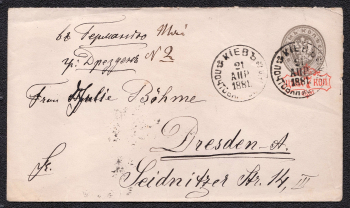 въ Германію
гр: Дрезденъ N 2
Frau Julie Böhme
Dresden-A.
Seidnitzer Str. 14, III
Fr.
КІЕВЪ
21
АПР
1881
КІЕВЪ
21
АПР
1881